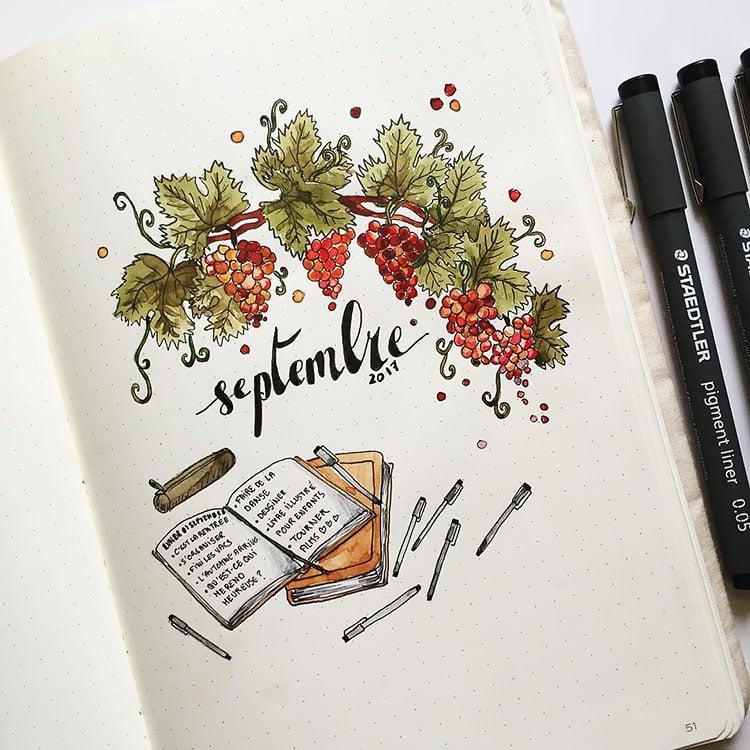 septembre
2017
LUNDI 01 SEPTEMBRE
• C'EST LA RENTRÉE
• S'ORGANISER
• FINI LES VACS
• L'AUTOMNE ARRIVE
• QU'EST-CE QUI
ME REND
HEUREUSE ?
FAIRE DE LA
DANSE
• DESSINER
• LIVRE ILLUSTRÉ
POUR ENFANTS
TOURNER
FILMS
STAEDTLER
pigment liner
0.05
STAEDTLER
51